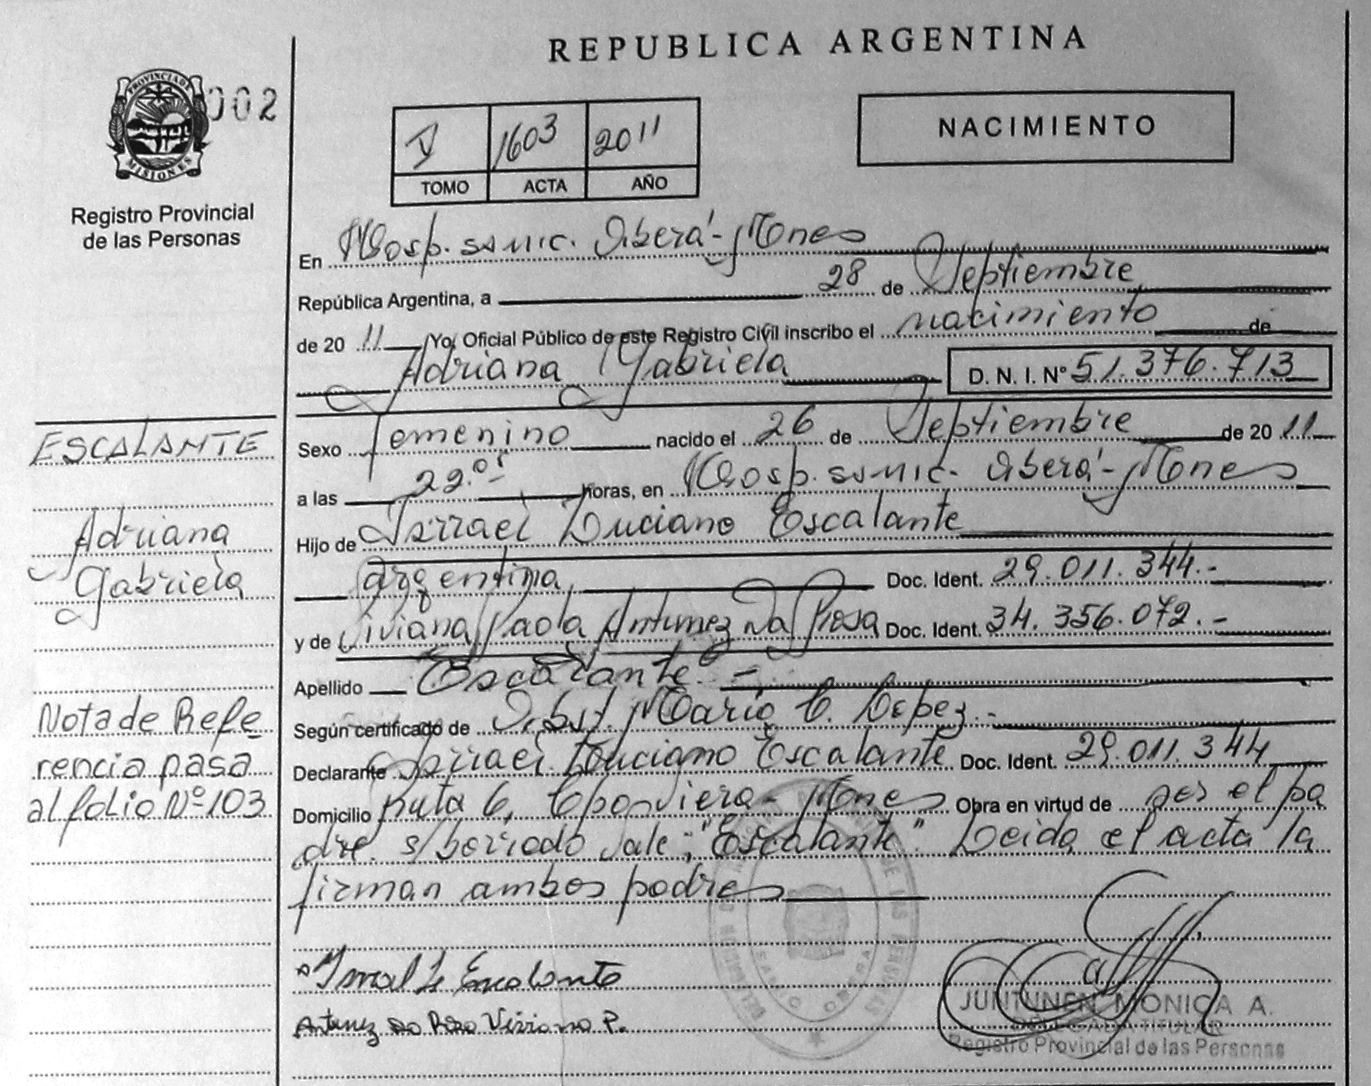 REPUBLICA ARGENTINA
PROVINCIA DE
MISIONES
002
Registro Provincial
de las Personas
V 1603 2011
TOMO ACTA AÑO
NACIMIENTO
En Hosp. samic. Oberá - Mones
República Argentina, a 28 de Septiembre
de 2011 Yo, Oficial Público de este Registro Civil inscribo el nacimiento de
Adriana Gabriela D. N. I. Nº 51.376.713
Sexo femenino nacido el 26 de Septiembre de 2011
a las 22.05 horas, en Hosp. samic. Oberá - Mones
Hijo de Isrrael Luciano Escalante
argentina, Doc. Ident. 29.011.344.-
y de Viviana Paola Antunez Da Rosa Doc. Ident. 34.356.072.-
Apellido Escalante.-
Según certificado de Obst. Mario C. Lopez.-
Declarante Isrrael Luciano Escalante Doc. Ident. 29.011.344
Domicilio Ruta 6, Mones Obra en virtud de ser el pa
dre. s/borrado vale; "Escalante". Leida el acta la
firman ambos padres
ESCALANTE
Adriana
Gabriela
Nota de Refe
rencia pasa
al folio Nº 103
Escalante
Antunez Da Rosa Viviana P.
JUNTUNEN MONICA A.
DELEGADA TITULAR
Registro Provincial de las Personas
DE LAS PERSONAS
OBERA